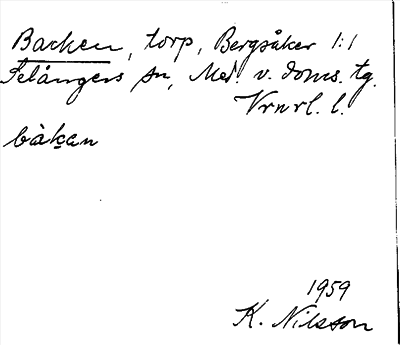 Backen, torp, Bergsåker 1:1
Selångers sn, Med. v. doms. tg.
Vrnrl. l.
bàk̬an
1959
K. Nilsson